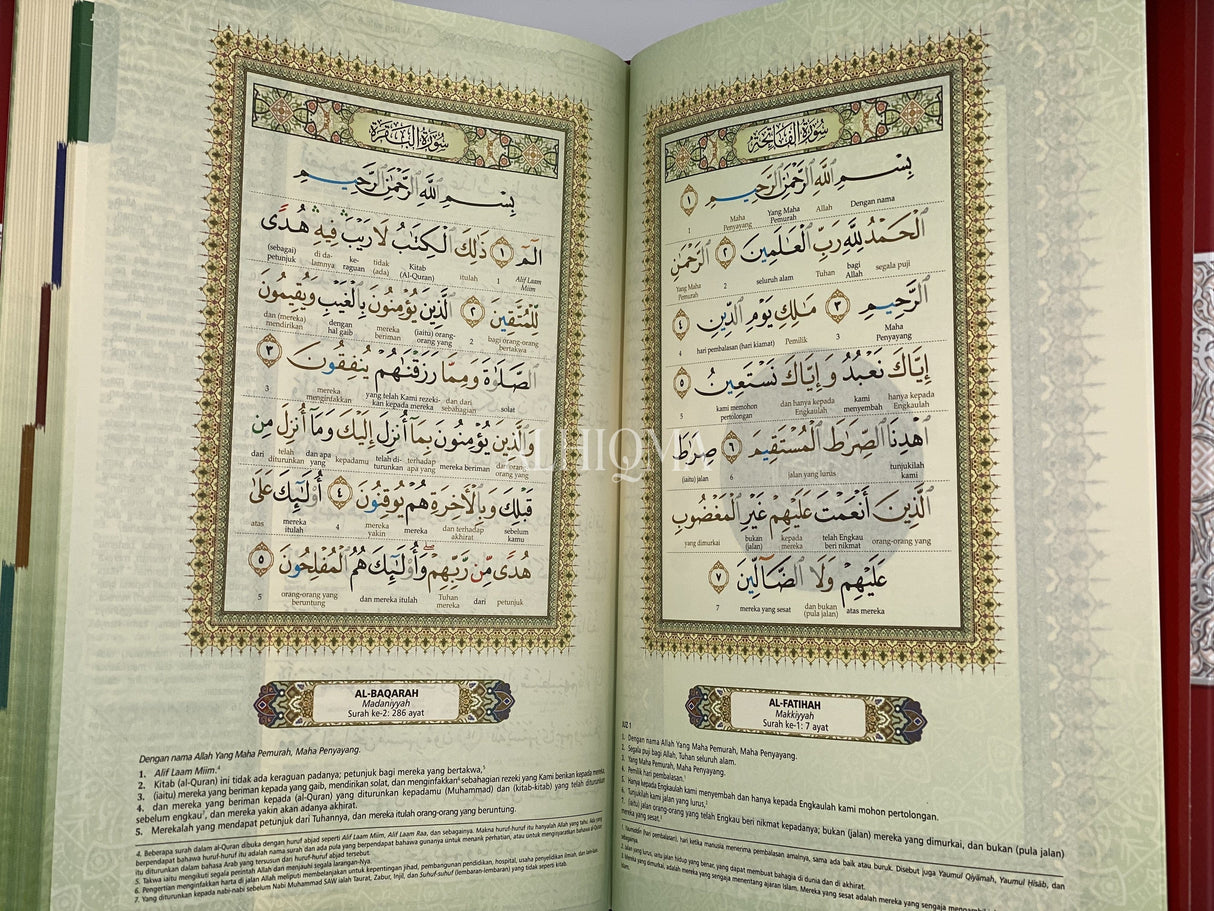 سُورَةُ الْفَاتِحَةِ
بِسْمِ ٱللَّهِ ٱلرَّحْمَٰنِ ٱلرَّحِيمِ ١
Dengan nama Allah Yang Maha Pemurah Maha Penyayang 1
ٱلْحَمْدُ لِلَّهِ رَبِّ ٱلْعَٰلَمِينَ ٢ ٱلرَّحْمَٰنِ
segala puji bagi Allah Tuhan seluruh alam 2 Yang Maha Pemurah
ٱلرَّحِيمِ ٣ مَٰلِكِ يَوْمِ ٱلدِّينِ ٤
Maha Penyayang 3 Pemilik hari pembalasan (hari kiamat) 4
إِيَّاكَ نَعْبُدُ وَإِيَّاكَ نَسْتَعِينُ ٥
hanya kepada Engkaulah kami menyembah dan hanya kepada Engkaulah kami memohon pertolongan 5
ٱهْدِنَا ٱلصِّرَٰطَ ٱلْمُسْتَقِيمَ ٦ صِرَٰطَ
tunjukilah kami jalan yang lurus 6 (iaitu) jalan
ٱلَّذِينَ أَنْعَمْتَ عَلَيْهِمْ غَيْرِ ٱلْمَغْضُوبِ
orang-orang yang telah Engkau beri nikmat kepada mereka bukan (jalan) yang dimurkai
عَلَيْهِمْ وَلَا ٱلضَّآلِّينَ ٧
atas mereka dan bukan (pula jalan) mereka yang sesat 7
AL-FATIHAH
Makkiyyah
Surah ke-1: 7 ayat
JUZ 1
1. Dengan nama Allah Yang Maha Pemurah, Maha Penyayang.
2. Segala puji bagi Allah, Tuhan seluruh alam.
3. Yang Maha Pemurah, Maha Penyayang.
4. Pemilik hari pembalasan.¹
5. Hanya kepada Engkaulah kami menyembah dan hanya kepada Engkaulah kami mohon pertolongan.
6. Tunjukilah kami jalan yang lurus,²
7. (iaitu) jalan orang-orang yang telah Engkau beri nikmat kepadanya; bukan (jalan) mereka yang dimurkai, dan bukan (pula jalan)
mereka yang sesat.³
1. Yaumiddin (hari pembalasan), hari ketika manusia menerima pembalasan amalnya, sama ada baik atau buruk. Disebut juga Yaumul Qiyāmah, Yaumul Hisāb, dan
sebagainya.
2. Jalan yang lurus, iaitu jalan hidup yang benar, yang dapat membuat bahagia di dunia dan di akhirat.
3. Mereka yang dimurkai, adalah mereka yang sengaja menentang ajaran Islam. Mereka yang sesat adalah mereka yang sengaja
سُورَةُ الْبَقَرَةِ
بِسْمِ ٱللَّهِ ٱلرَّحْمَٰنِ ٱلرَّحِيمِ
الٓمٓ ١ ذَٰلِكَ ٱلْكِتَٰبُ لَا رَيْبَ ۛ فِيهِ ۛ هُدًى
Alif Laam Miim 1 itulah Kitab (Al-Quran) tidak (ada) ke-raguan di da-lamnya (sebagai) petunjuk
لِّلْمُتَّقِينَ ٢ ٱلَّذِينَ يُؤْمِنُونَ بِٱلْغَيْبِ وَيُقِيمُونَ
bagi orang-orang bertakwa 2 (iaitu) orang-orang yang mereka beriman dengan hal gaib dan (mereka) mendirikan
ٱلصَّلَوٰةَ وَمِمَّا رَزَقْنَٰهُمْ يُنفِقُونَ ٣
solat dan dari sebahagian yang telah Kami rezeki-kan kepada mereka mereka menginfakkan 3
وَٱلَّذِينَ يُؤْمِنُونَ بِمَآ أُنزِلَ إِلَيْكَ وَمَآ أُنزِلَ مِن
dan orang-orang yang mereka beriman terhadap apa yang telah di-turunkan kepadamu dan apa yang telah diturunkan dari
قَبْلِكَ وَبِٱلْءَاخِرَةِ هُمْ يُوقِنُونَ ٤ أُو۟لَٰٓئِكَ عَلَىٰ
sebelum kamu dan terhadap akhirat mereka mereka yakin 4 mereka itulah atas
هُدًى مِّن رَّبِّهِمْ ۖ وَأُو۟لَٰٓئِكَ هُمُ ٱلْمُفْلِحُونَ ٥
petunjuk dari Tuhan mereka dan mereka itulah orang-orang yang beruntung 5
AL-BAQARAH
Madaniyyah
Surah ke-2: 286 ayat
Dengan nama Allah Yang Maha Pemurah, Maha Penyayang.
1. Alif Laam Miim.⁴
2. Kitab (al-Quran) ini tidak ada keraguan padanya; petunjuk bagi mereka yang bertakwa,⁵
3. (iaitu) mereka yang beriman kepada yang gaib, mendirikan solat, dan menginfakkan⁶ sebahagian rezeki yang Kami berikan kepada mereka,
4. dan mereka yang beriman kepada (al-Quran) yang diturunkan kepadamu (Muhammad) dan (kitab-kitab) yang telah diturunkan
sebelum engkau⁷, dan mereka yakin akan adanya akhirat.
5. Merekalah yang mendapat petunjuk dari Tuhannya, dan mereka itulah orang-orang yang beruntung.
4. Beberapa surah dalam al-Quran dibuka dengan huruf abjad seperti Alif Laam Miim, Alif Laam Raa, dan sebagainya. Makna huruf-huruf itu hanyalah Allah yang tahu. Ada yang
berpendapat bahawa huruf-huruf itu adalah nama surah dan ada pula yang berpendapat bahawa gunanya untuk menarik perhatian, atau untuk mengisyaratkan bahawa al-Quran
itu diturunkan dalam bahasa Arab yang tersusun dari huruf-huruf abjad tersebut.
5. Takwa iaitu mengikuti segala perintah Allah dan menjauhi segala larangan-Nya.
6. Pengertian menginfakkan harta di jalan Allah meliputi membelanjakan untuk kepentingan jihad, pembangunan pendidikan, hospital, usaha penyelidikan ilmiah, dan lain-lain.
7. Yang diturunkan kepada nabi-nabi sebelum Nabi Muhammad SAW ialah Taurat, Zabur, Injil, dan Suhuf-suhuf (lembaran-lembaran) yang tidak seperti kitab.
ALHIQMA